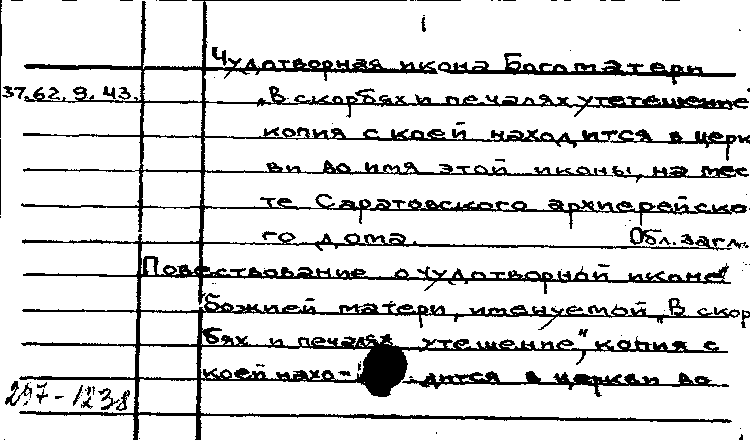 1
Чудотворная икона Богоматери
37.62.9.43.
„В скорбях и печалях утетешение"
копия с коей находится в церк
ви во имя этой иконы, на мес
те Саратовского архиерейско
го дома. Обл. загл.
Повествование о чудотворной иконе
Божией матери, именуемой „В скор
бях и печалях утешение", копия с
коей нахо- дится в церкви во
297-1238